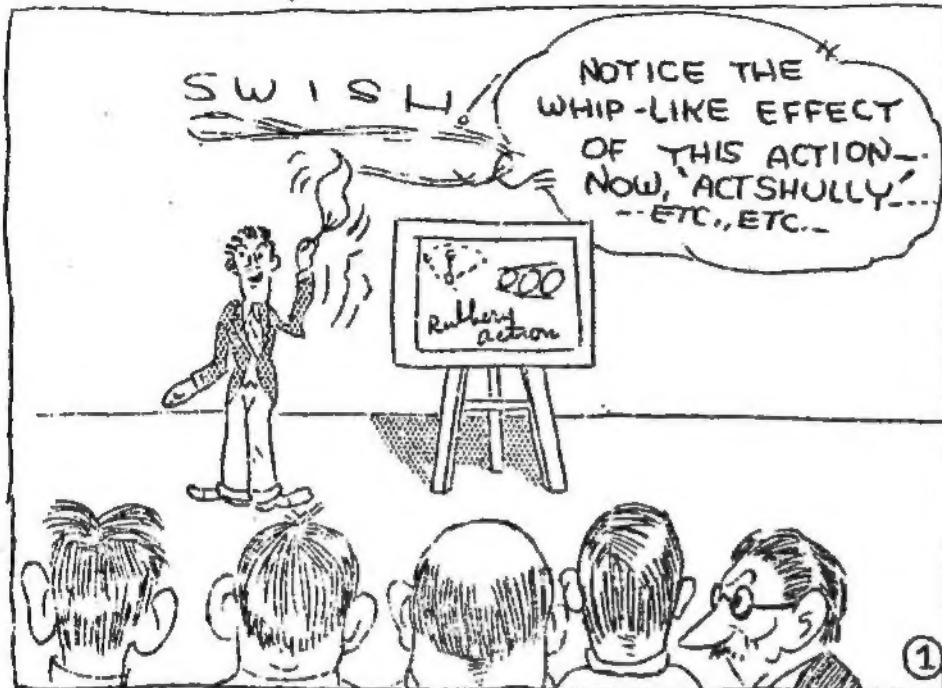 SWISH
NOTICE THE
WHIP-LIKE EFFECT
OF THIS ACTION--
NOW, "ACTSHULLY"----
---ETC., ETC.--
Rubbery
action
1